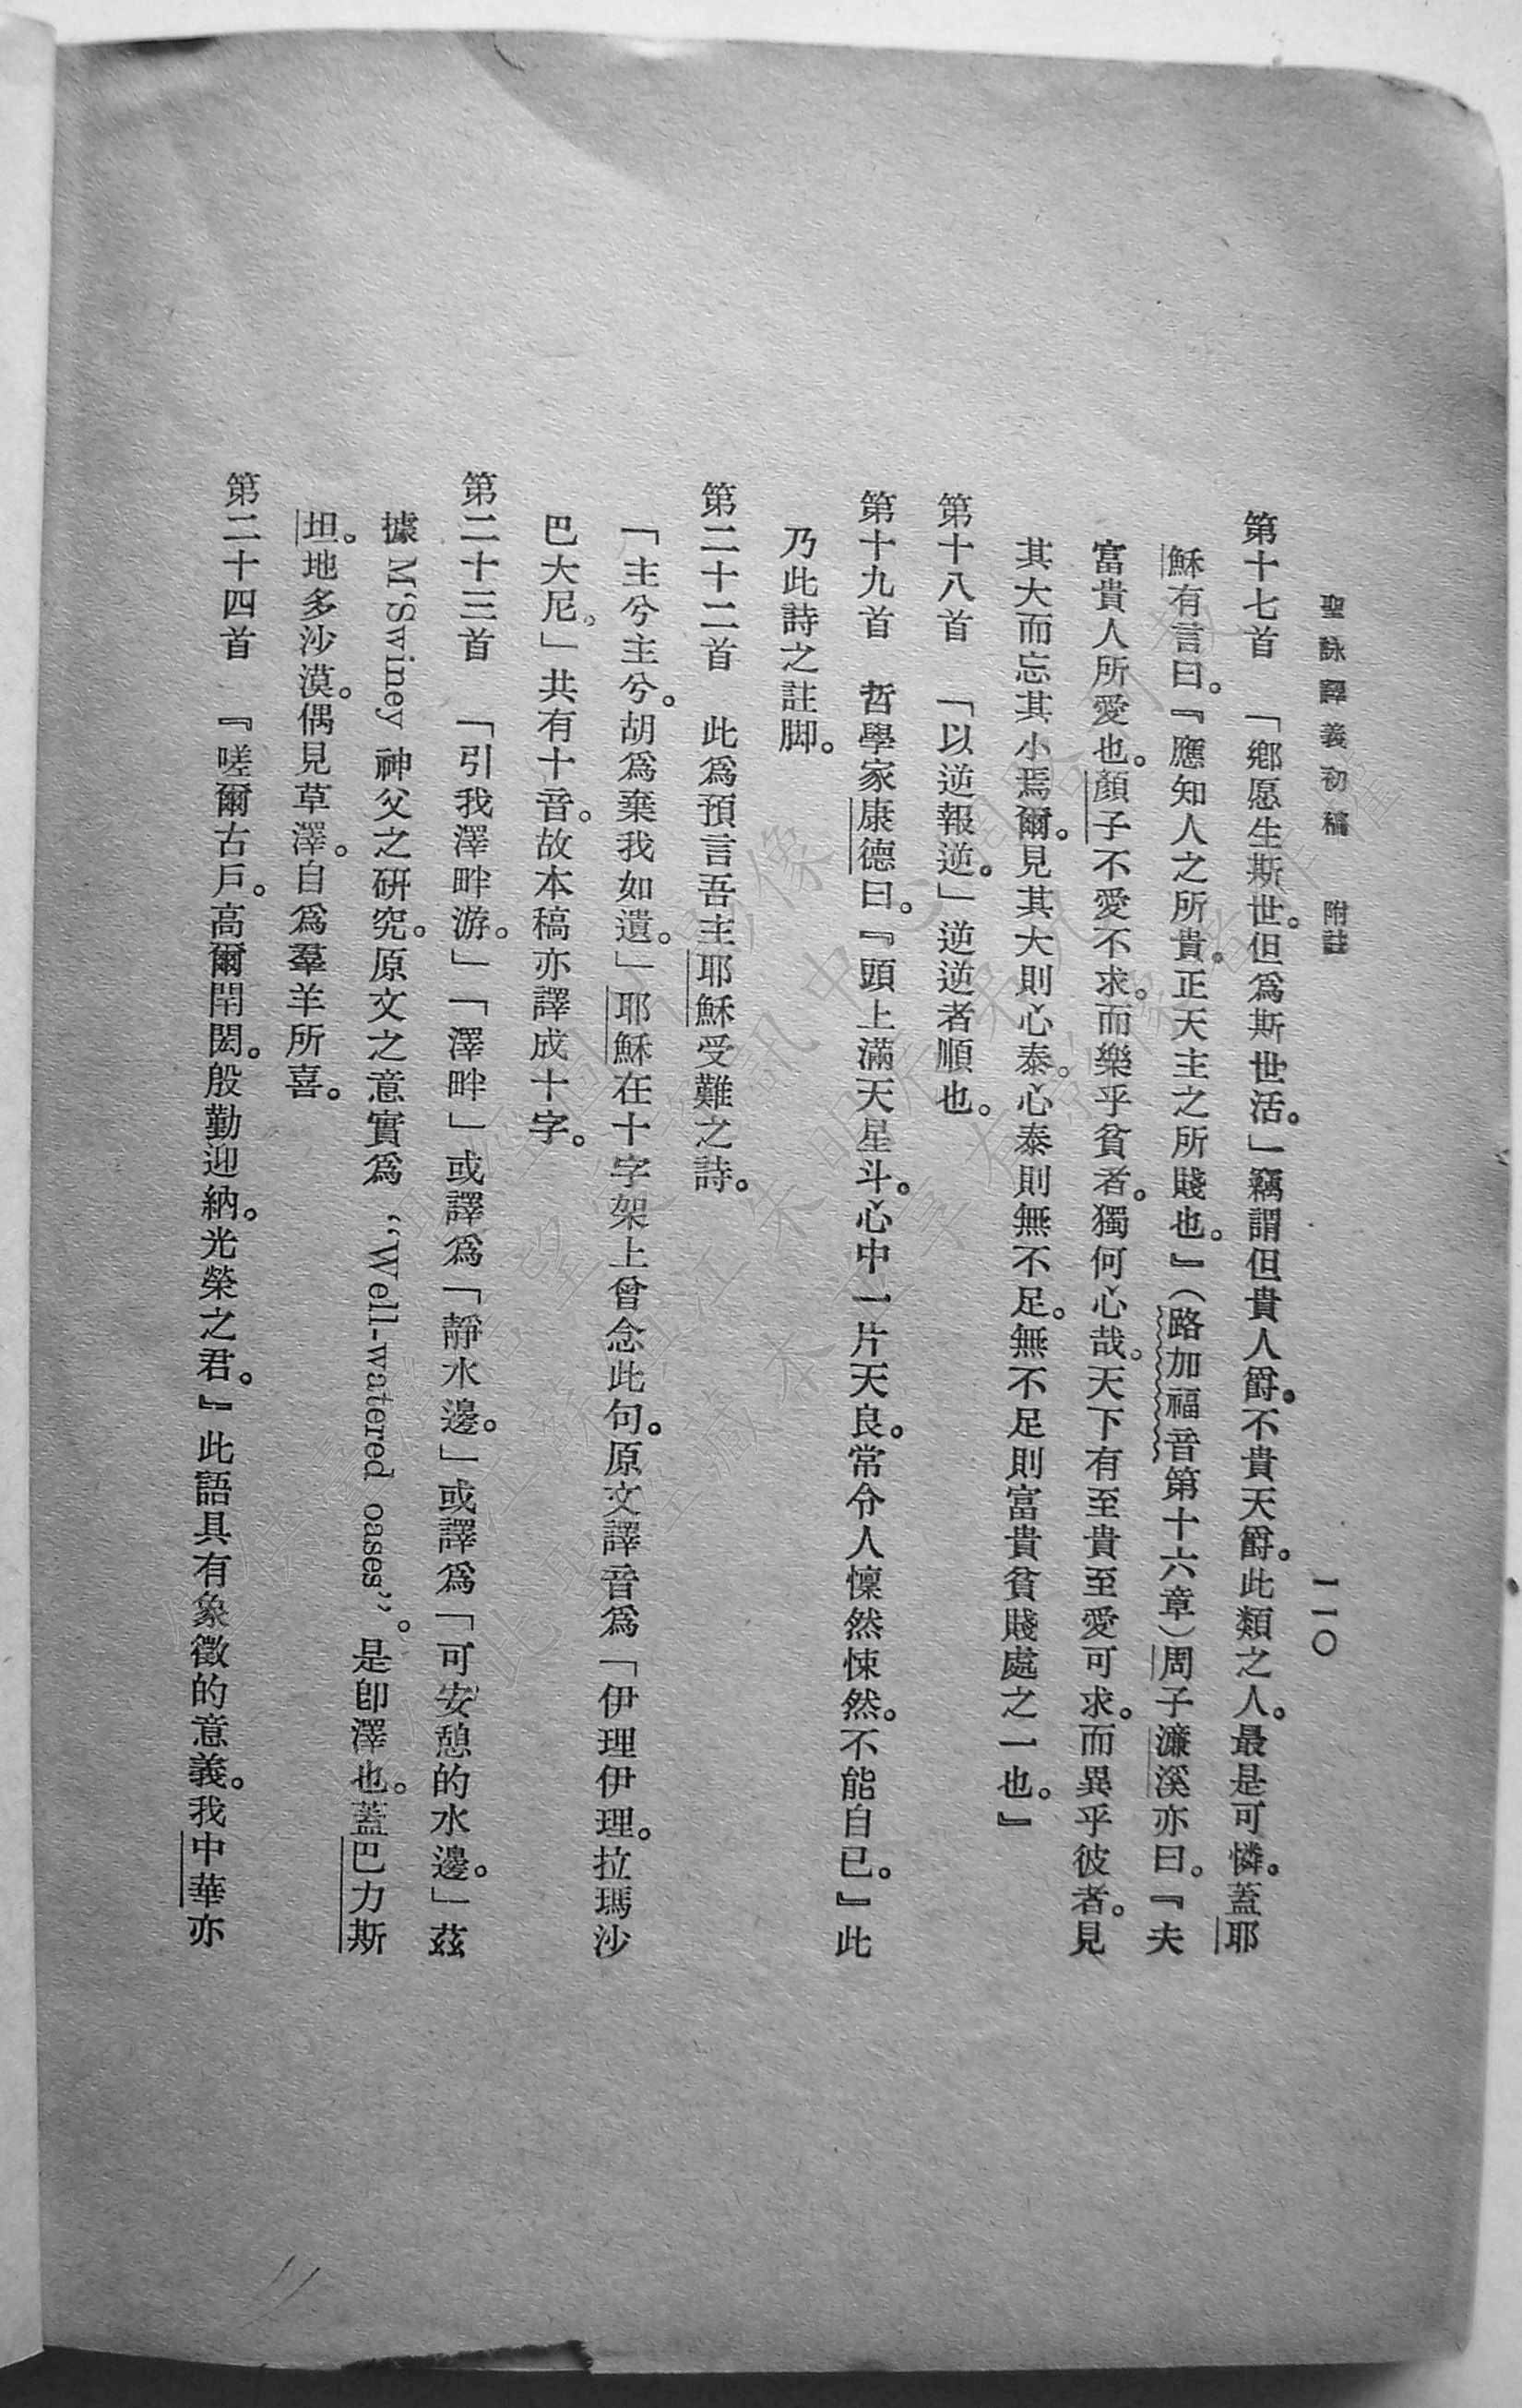 聖詠譯義初稿　附註　一一〇
第十七首　「鄕愿生斯世。但爲斯世活。」竊謂但貴人爵。不貴天爵。此類之人。最是可憐。蓋耶
穌有言曰。『應知人之所貴。正天主之所賤也。』（路加福音第十六章）周子濂溪亦曰。『夫
富貴人所愛也。顏子不愛不求。而樂乎貧者。獨何心哉。天下有至貴至愛可求。而異乎彼者。見
其大而忘其小焉爾。見其大則心泰。心泰則無不足。無不足則富貴貧賤處之一也。』
第十八首　「以逆報逆。」逆逆者順也。
第十九首　哲學家康德曰。『頭上滿天星斗。心中一片天良。常令人懍然悚然。不能自已。』此
乃此詩之註脚。
第二十二首　此爲預言吾主耶穌受難之詩。
「主兮主兮。胡爲棄我如遺。」耶穌在十字架上曾念此句。原文譯音爲「伊理伊理。拉瑪沙
巴大尼。」共有十音。故本稿亦譯成十字。
第二十三首　「引我澤畔游。」「澤畔」或譯爲「靜水邊。」或譯爲「可安憩的水邊。」茲
據 M‘Swiney 神父之研究。原文之意實爲 “Well-watered oases”。是卽澤也。蓋巴力斯
坦。地多沙漠。偶見草澤。自爲羣羊所喜。
第二十四首　『嗟爾古戶。高爾閈閎。殷勤迎納。光榮之君。』此語具有象徵的意義。我中華亦